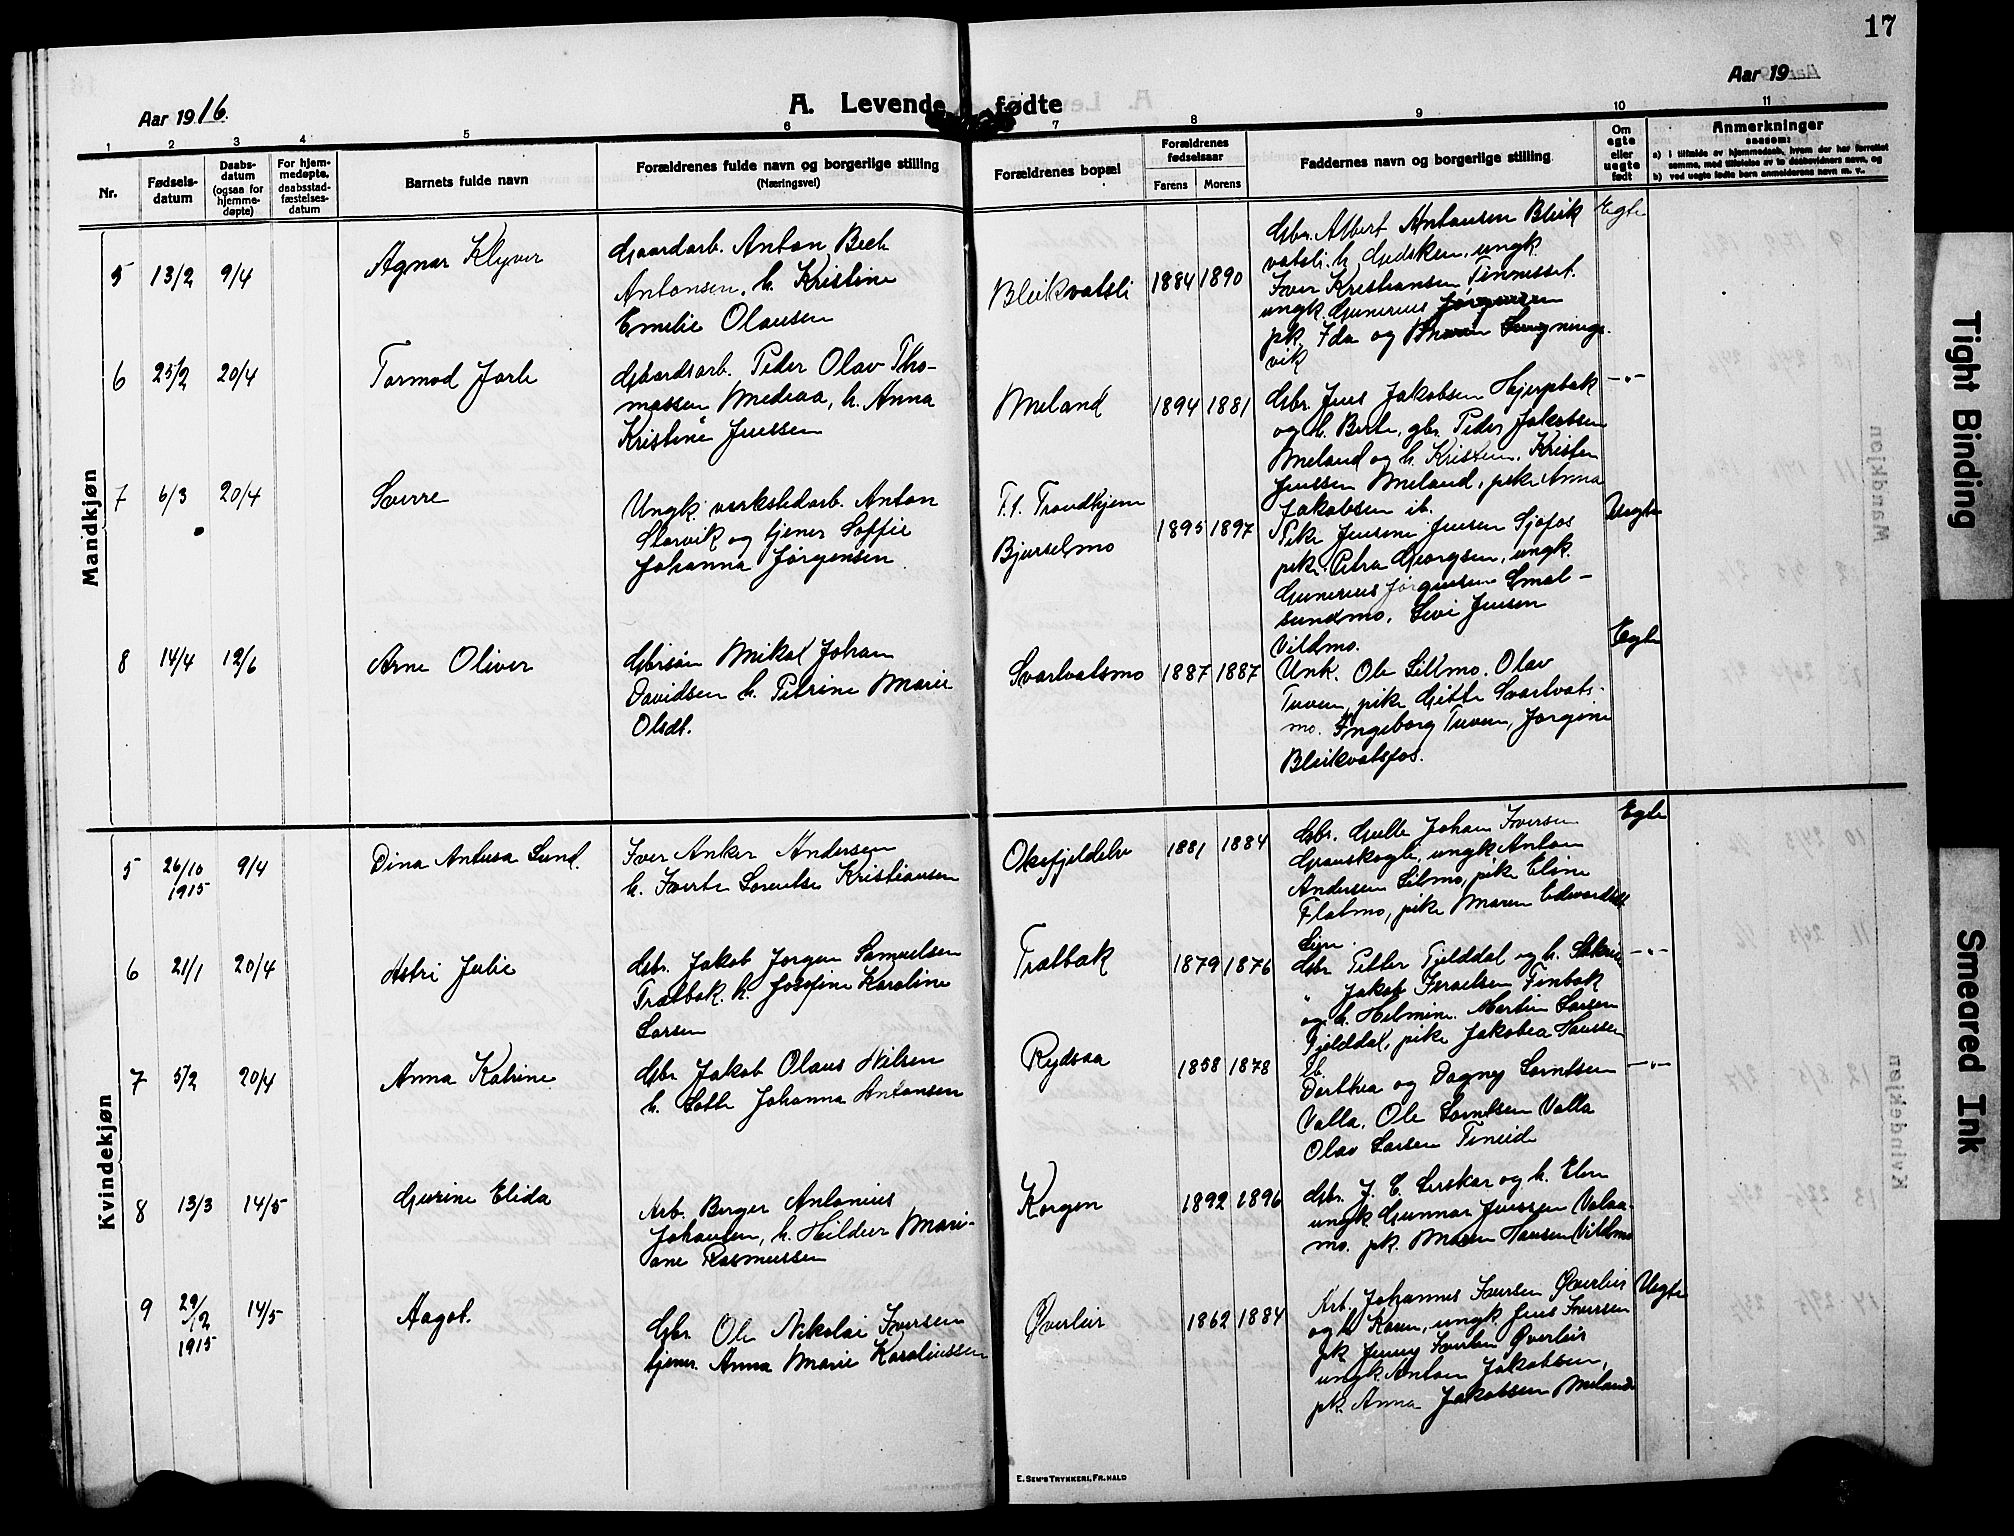 17
Aar 1916.
A. Levende fødte
Aar 19
1 2 3 4 5 6 7 8 9 10 11
Nr.
Fødsels-
datum
Daabs-
datum
(ogsaa for
hjemme-
døpte)
For hjem-
medøpte,
daabsstad-
fæstelses-
datum
Barnets fulde navn
Forældrenes fulde navn og borgerlige stilling
(Næringsvei)
Forældrenes bopæl
Forældrenes
fødselsaar
Farens Morens
Faddernes navn og borgerlige stilling
Om
egte
eller
uegte
født
Anmerkninger
saasom:
a) i tilfælde av hjemmedaab, hvem der har forrettet
samme, med tilføielse av to daabsvidners navn, og
b) ved uegte fødte barn anmelderens navn m. v.
Mandkjøn
5 13/2 9/4 Agnar Klyver
Gaardarb. Anton Bech
Antonsen, h. Kristine
Emelie Olausen
Bleikvatsli 1884 1890
Gbr. Albert Antonsen Bleik
vatsli. h. Gedsken, ungk
Iver Kristiansen Tinnesset.
ungk. Gunerius Jørgensen
pk. Ida og Maren
vik
Egte
6 25/2 20/4 Tormod Jarle
Gbardsarb. Peder Olav Tho-
massen Medeaa, h. Anna
Kristine Jenssen
Meland 1894 1881
Gbr. Jens Jakobsen Hjerpbak
og h. Berte, gbr. Peder Jakobsen
Meland og h. Kristine, Kristen
Jenssen Meland, pike Anna
Jakobsen ib.
—"—
7 6/3 20/4 Sverre
Ungk. verkstedarb. Anton
Storvik og tjener Soffie
Johanna Jørgensen
T.t. Trondhjem
Bjurselmo 1895 1897
Pike Jensine Jensen Sjøfos
pike Petra Georgsen, ungk.
Gunerius Jørgensen Smal-
sundmo, Levi Jensen
Vildmo.
Uegte
8 14/4 12/6 Arne Oliver
Gbrsøn Mikal Johan
Davidsen h. Petrine Marie
Olsdt.
Svartvatsmo 1887 1887
Unk. Ole Lillmo. Olav
Tuven, pike Gitte Svartvats-
mo. Ingeborg Tuven, Jorgine
Bleikvatsfos.
Egte
Kvindekjøn
5 26/10 1915 9/4 Dina Antusa Lund.
Iver Anker Andersen
h. Iverte Lorentse Kristiansen
Oksfjeldelv 1881 1884
Gbr. Gulle Johan Iversen
Granskogli, ungk Anton
Andersen Lilmo, pike Eline
Flatmo, pike Maren Edvardsdt
Lien.
Egte
6 21/1 20/4 Astri Julie
Gbr. Jakob Jorgen Samuelsen
Tratbak. h. Josefine Karoline
Larsen
Tratbak 1879 1876
Gbr Petter Fjelddal og h.
" Jakob Israelsen Finbak
og h. Helmine. Martin Larsen
Fjelddal, pike Jakobea Hansen
ib.
—"—
7 5/2 20/4 Anna Katrine
Gbr Jakob Olaus Nilsen
h. Lotte Johanna Antonsen
Rydsaa 1858 1878
Dorthea og Dagny Lorntsen
Valla. Ole Lorntsen Valla
Olav Larsen Tineid
—"—
8 13/3 14/5 Gurine Elida
Arb. Berger Antonius
Johansen, h. Hildur Mari-
ane Rasmussen
Korgen 1892 1896
Gbr. J. C. Lerskar og h. Elen
ungk Gunnar Jenssen Valaa-
mo. pk. Maren Hansen Vildmo
9 29/12 1915 14/5 Aagot.
Gbr Ole Nikolai Iversen
tjener Anna Marie Karoliussen
Øverleir 1862 1884
Arb. Johannes Iversen Øverleir
og h Karen, ungk Jens Iversen
pk Jenny Iversen Øverleir
ungk Anton Jakobsen,
pk. Anna Jakobsen Meland
Uegte
E. SEM'S TRYKKERI, FR.HALD
Tight Binding
Smeared Ink